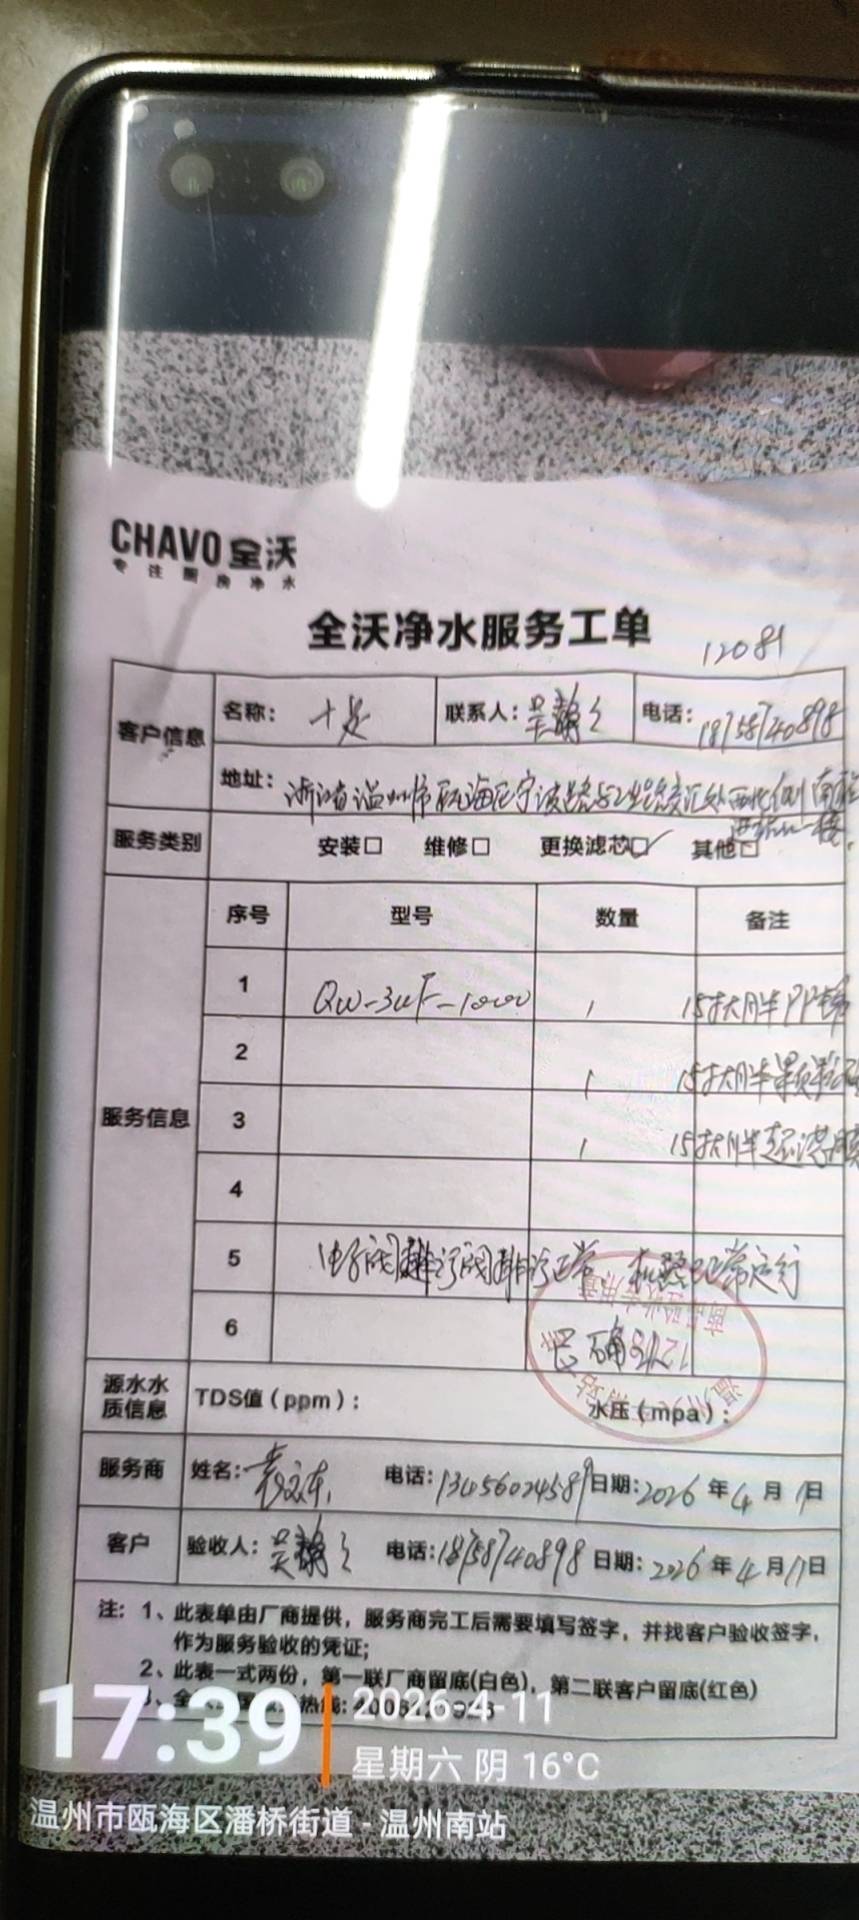 CHAVO 全沃
专注厨房净水
全沃净水服务工单
12081
客户信息 名称： 十足 联系人：吴 电话：18758740898
地址：浙江省温州市瓯海区宁波路与工业路交汇处西北侧南
一楼
服务类别 安装□ 维修□ 更换滤芯☑ 其他□
服务信息 序号 型号 数量 备注
1 QW-3UF-1000 1 15寸大胖PP棉
2 1 15寸大胖颗粒
3 1 15寸大胖超滤膜
4
5 电子阀排污阀排污正常、机器已正常运行
6 已确认
源水水质信息 TDS值（ppm）： 水压（mpa）：
服务商 姓名： 电话：13456024589 日期：2026年4月11日
客户 验收人：吴 电话：18758740898 日期：2026年4月11日
注：1、此表单由厂商提供，服务商完工后需要填写签字，并找客户验收签字，
作为服务验收的凭证；
2、此表一式两份，第一联厂商留底(白色)，第二联客户留底(红色)
3、全 热线：
17:39
2026-4-11
星期六 阴 16°C
温州市瓯海区潘桥街道 - 温州南站